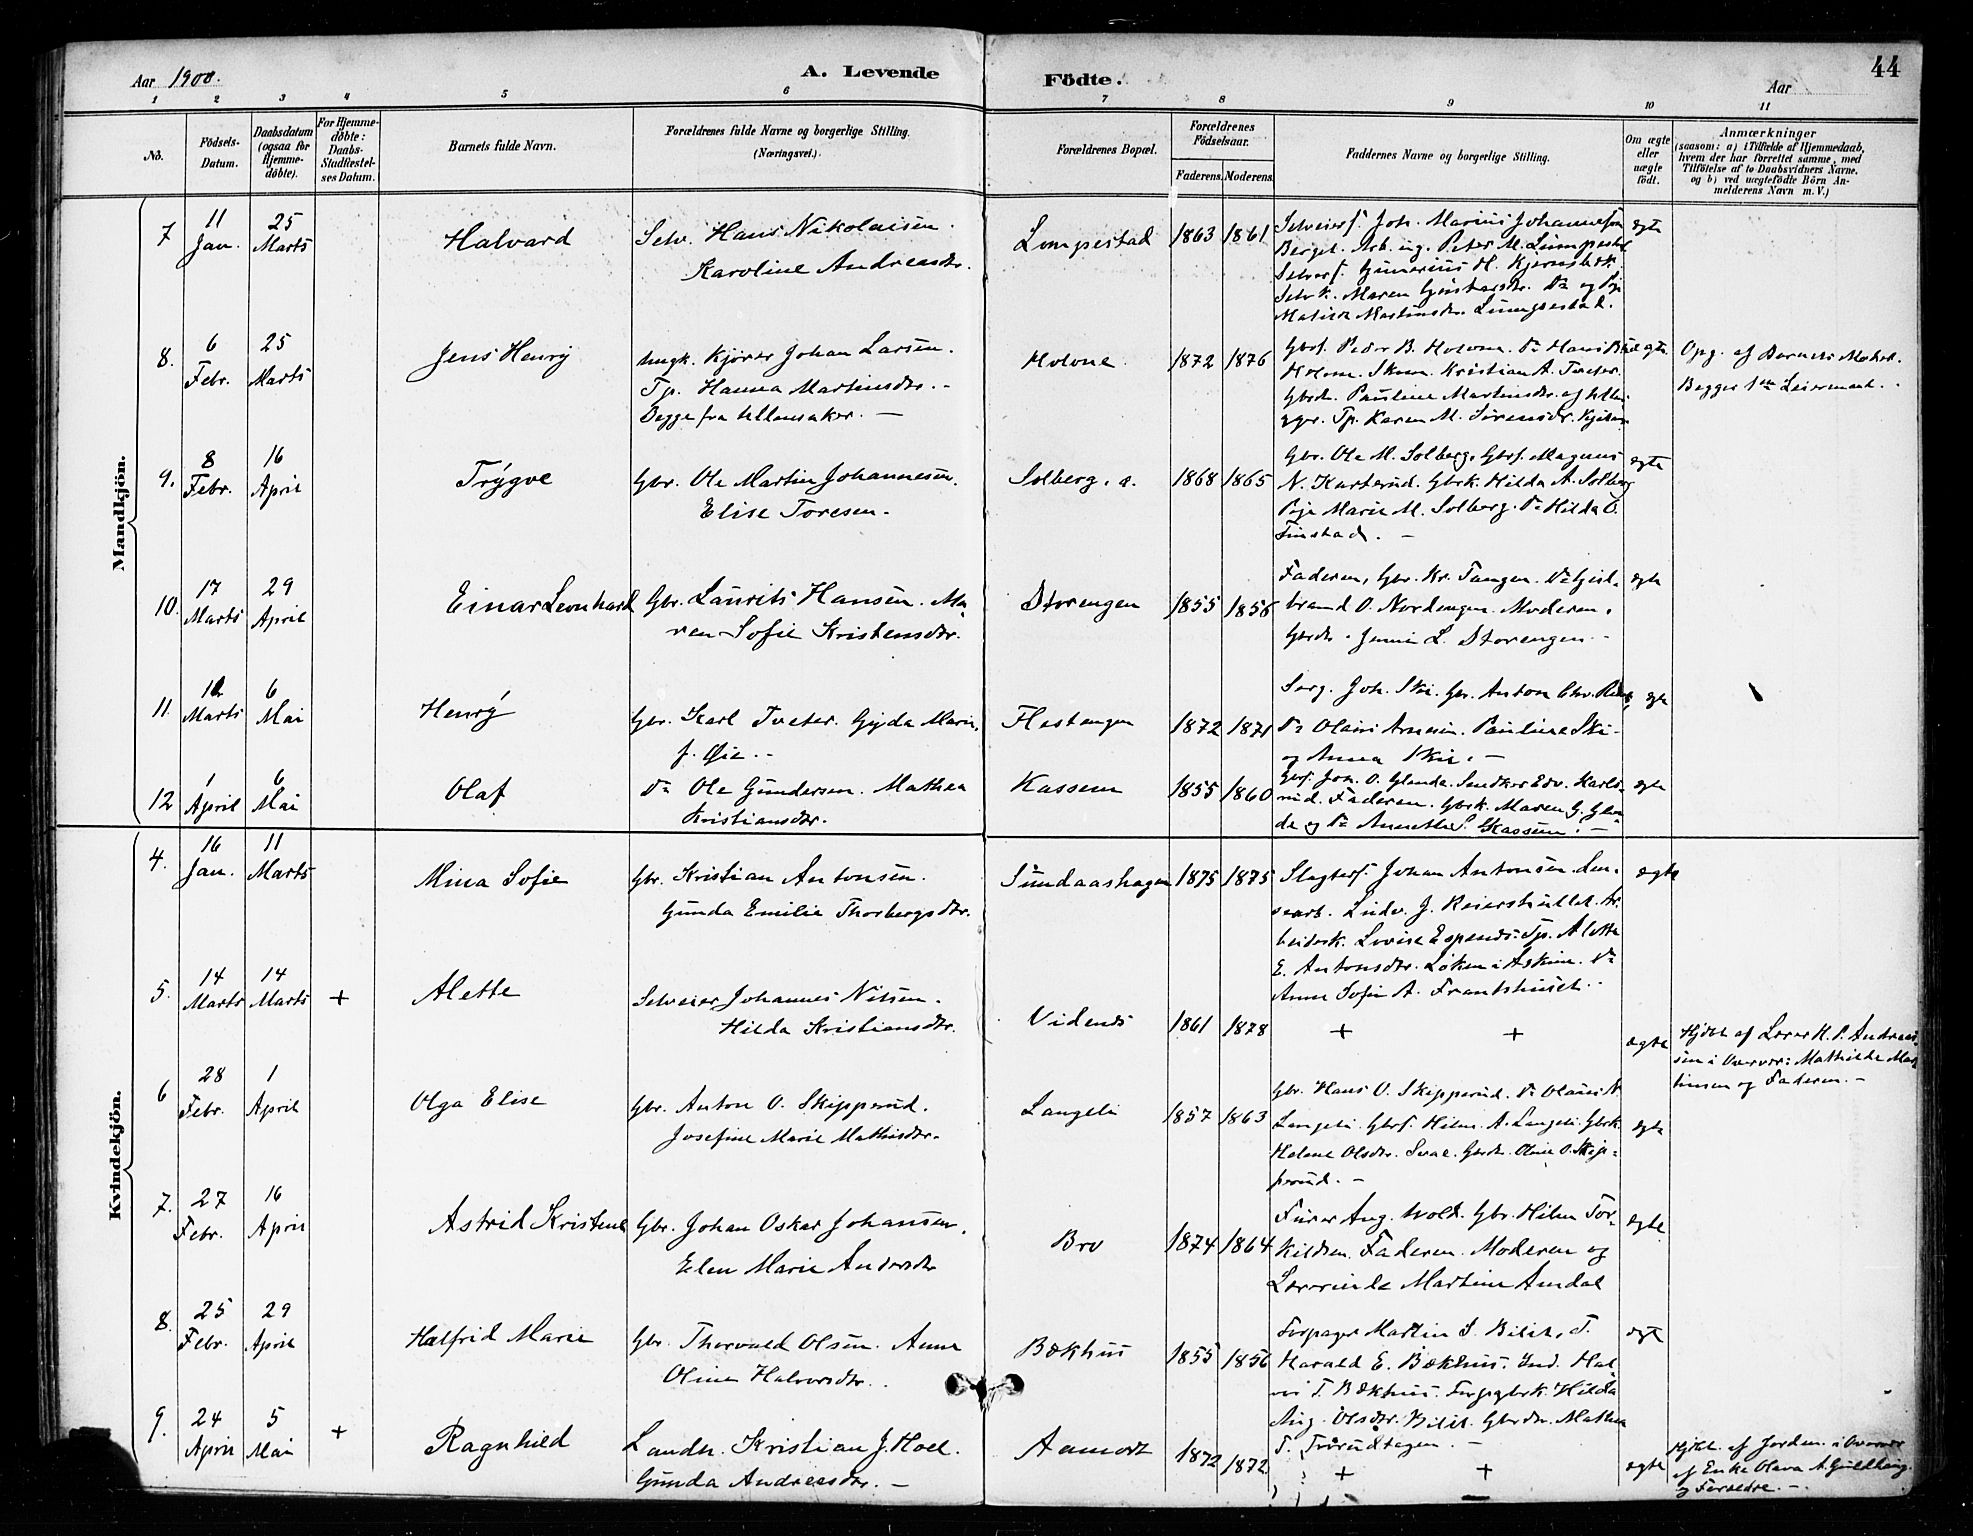 Aar 1900.
A. Levende
Födte.
Aar
44
1 2 3 4 5 6 7 8 9 10 11
No.
Födsels-
Datum.
Daabsdatum
(ogsaa for
Hjemme-
døbte).
For Hjemme-
døbte:
Daabs-
Stadfæstel-
ses Datum.
Barnets fulde Navn.
Forældrenes fulde Navne og borgerlige Stilling.
(Næringsvei.)
Forældrenes Bopæl.
Forældrenes
Födselsaar.
Faderens. Moderens.
Faddernes Navne og borgerlige Stilling.
Om ægte
eller
uægte
født.
Anmærkninger
(saasom: a) i Tilfælde af Hjemmedaab,
hvem der har forrettet samme, med
Tilföielse af to Daabsvidners Navne,
og b) ved uægtefödte Börn An-
melderens Navn m. V.)
Mandkjön.
7 11 Jan. 25 Marts Halvard
Selv. Hans Nikolaisen.
Karoline Andreasdr.
Lompestad 1863 1861
Selveierf. Joh. Marius Johannesen
Berget. Arb. ug. Peter M. Lumpestad
Selveierf. Gunerius H.
Selv k. Maren Gustavsdr. Do og Pige
Matilda Martinsdr. Lumpestad.
egte
8. 6 Febr. 25 Marts Jens Henry
ungk. Kjører Johan Larsen.
Tp. Hanna Martinsdtr.
Begge fra Ullensaker. —
Holone 1872 1876
Gbrf. Peder B. Holone. Do Hans
Holone. Skom. Kristian A. Tveter.
Gbrdr. Pauline Martinsdr. af
Tp. Karen M. Sørensdr.
uegte.
Opg. af Barnets Moder.
Begges 1ste Leiermaal.
9. 8 Febr. 16 April Trygve
Gbr. Ole Martin Johannesen.
Elise Toresen.
Solberg. ø. 1868 1865
Gbr. Ole M. Solberg. Gbrf. Magnus
N. Karterud. Gbrk. Hilda A. Solberg
Pige Marie M. Solberg. Do Hilda O.
Finstad. —
egte
10. 17 Marts 29 April Einar Leonhard
Gbr. Laurits Hansen. Ma-
ren Sofie Kristensdtr.
Storengen 1855 1856
Faderen, Gbr. Kr. Tangen. Do Guld-
brand O. Nordengen. Moderen.
Gbrdr. Jenni L. Storengen.
egte
11. 12 Marts 6 Mai Henry
Gbr. Karl Tveter. Gyda Marie
f. Øie.
Flestangen 1872 1871
Serg. Joh. Ski. Gbr. Anton Chr.
Do Olaus Arnesen. Pauline Ski
og Anna Ski. —
egte
12 1 April 6 Mai Olaf
Do Ole Gundersen. Mathea
Kristiansdtr.
Kassem 1855 1860
Gbrf. Joh. O. Glende. Snedker Edv. Karls-
rud. Faderen. Gbrk. Maren G. Glen-
de og Do Annette S. Kassem. —
egte
Kvindekjön.
4. 16 Jan. 11 Marts Mina Sofie
Gbr. Kristian Antonsen.
Gunda Emilie Thorbergsdtr.
Sundaashagen 1875 1875
Slagterf. Johan Antonsen.
Ludv. J. Ar-
beiderk. Lovise Espensdr. Tp. Alette
E. Antonsdtr. Løken i Askim. Do
Anne Sofie A. Frantshuset.
egte
5. 14 Marts 14 Marts + Alette
Selveier Johannes Nilsen.
Hilda Kristiansdtr.
Videnes 1861 1878
+ +
egte
Hjdbt. af Lærer H. P. Andreas-
sen i Mathilde Mar-
tinsen og Faderen. —
6 28 Febr. 1 April Olga Elise
Gbr. Anton O. Skipperud.
Josefine Marie Mathisdtr.
Langeli 1857 1863
Gbr. Hans O. Skipperud. Do Olaus N.
Langeli. Gbrf. Hilm. A. Langeli. Gbrk.
Helene Olsdtr. Gbrdr. Oline O. Skip-
perud. —
egte
7. 27 Febr. 16 April Astrid Kristine
Gbr. Johan Oskar Johansen.
Elen Marie Andersdtr
Bro 1874 1864
Furer Aug. Wold. Gbr. Hilm Tor-
kildsen. Faderen. Moderen og
Lærerinde Martine Amdal
egte
8. 25 Febr. 29 April Halfrid Marie
Gbr. Thorvald Olsen. Anne
Oline Halvorsdtr.
Bækhus 1855 1856
Forpagter Martin S. Bilit.
Harald E. Bækhus. Hal-
T. Bækhus. Hilda
Aug. Olsdtr. Bilit. Gbrdr. Mathea
T.
egte
9. 24 April 5 Mai + Ragnhild
Landh. Kristian J. Hoel.
Gunda Andreasdtr. —
Aamodt 1872 1872
+ +
egte
Hjdbt. af Jordm. i
af Enke Olava A. Guldhaug.
og Forældre. —